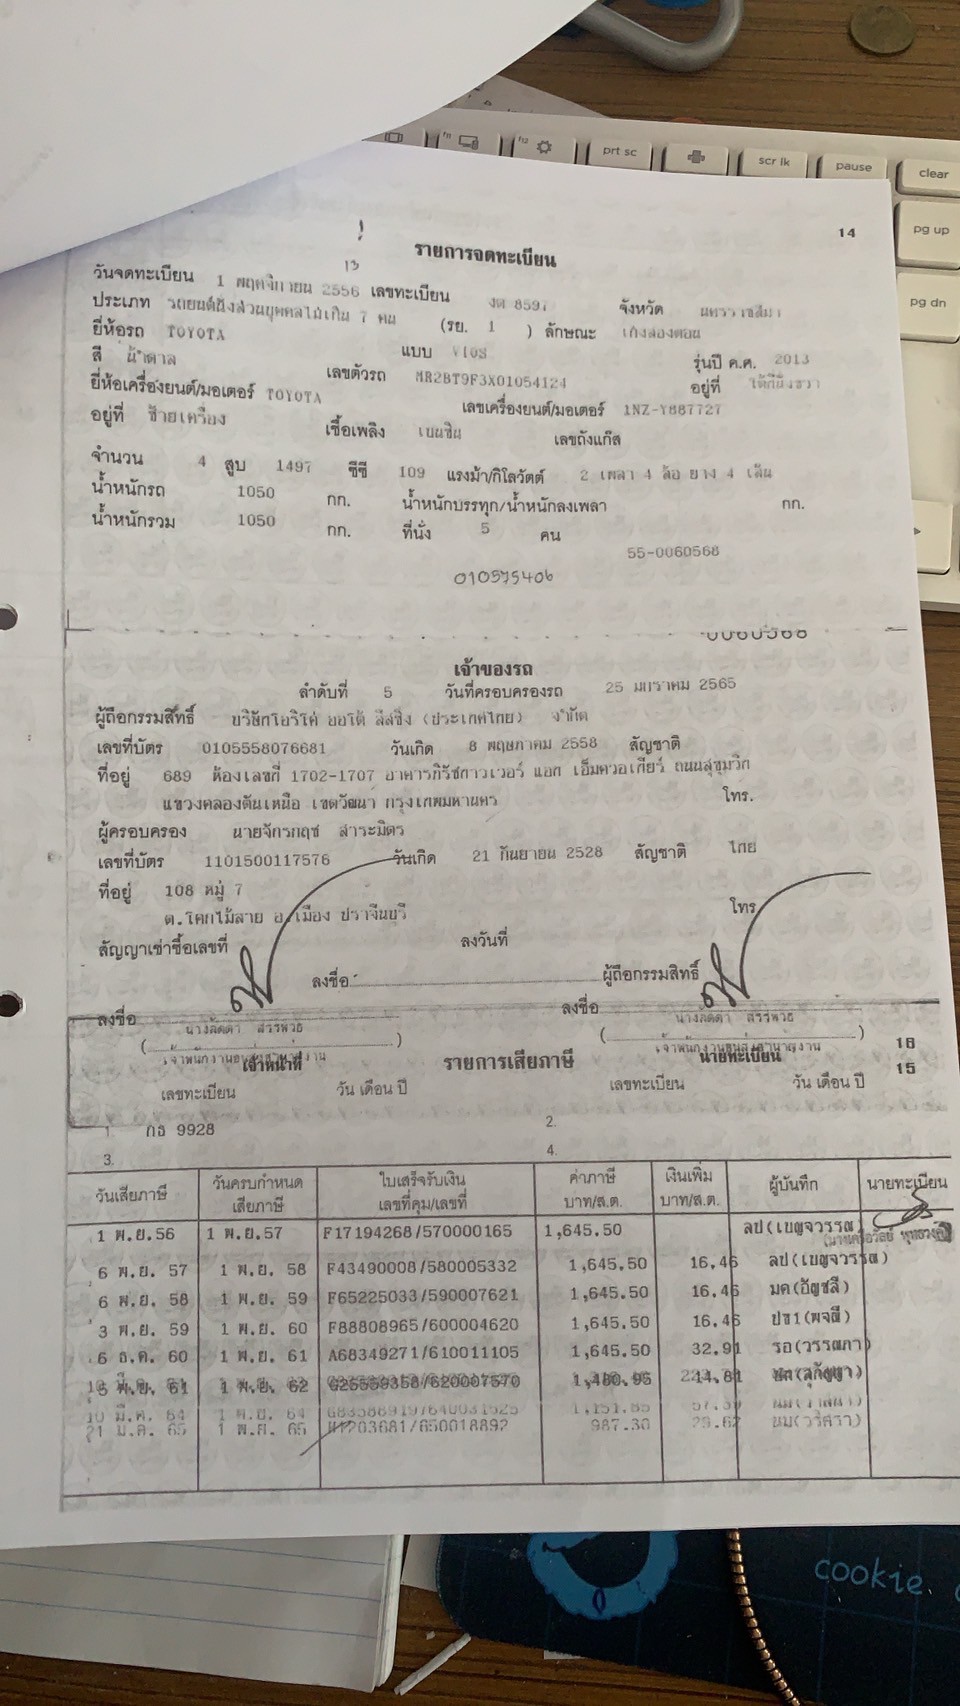 prt sc
scr lk
pause
clear
pg up
pg dn
14
รายการจดทะเบียน
13
วันจดทะเบียน 1 พฤศจิกายน 2556 เลขทะเบียน งต 8597 จังหวัด นครราชสีมา
ประเภท รถยนต์นั่งส่วนบุคคลไม่เกิน 7 คน (รย. 1 ) ลักษณะ เก๋งสองตอน
ยี่ห้อรถ TOYOTA แบบ VIOS รุ่นปี ค.ศ. 2013
สี น้ำตาล เลขตัวรถ MR2BT9F3X01054124 อยู่ที่ ใต้ที่นั่งขวา
ยี่ห้อเครื่องยนต์/มอเตอร์ TOYOTA เลขเครื่องยนต์/มอเตอร์ 1NZ-Y887727
อยู่ที่ ซ้ายเครื่อง เชื้อเพลิง เบนซิน เลขถังแก๊ส
จำนวน 4 สูบ 1497 ซีซี 109 แรงม้า/กิโลวัตต์ 2 เพลา 4 ล้อ ยาง 4 เส้น
น้ำหนักรถ 1050 กก. น้ำหนักบรรทุก/น้ำหนักลงเพลา กก.
น้ำหนักรวม 1050 กก. ที่นั่ง 5 คน
55-0060568
010575406
0060568
เจ้าของรถ
ลำดับที่ 5 วันที่ครอบครองรถ 25 มกราคม 2565
ผู้ถือกรรมสิทธิ์ บริษัทโอริโค่ ออโต้ ลีสซิ่ง (ประเทศไทย) จำกัด
เลขที่บัตร 0105558076681 วันเกิด 8 พฤษภาคม 2558 สัญชาติ
ที่อยู่ 689 ห้องเลขที่ 1702-1707 อาคารภิรัชทาวเวอร์ แอท เอ็มควอเทียร์ ถนนสุขุมวิท
แขวงคลองตันเหนือ เขตวัฒนา กรุงเทพมหานคร โทร.
ผู้ครอบครอง นายจักรกฤช สาระมิตร
เลขที่บัตร 1101500117576 วันเกิด 21 กันยายน 2528 สัญชาติ ไทย
ที่อยู่ 108 หมู่ 7
ต.โคกไม้ลาย อ.เมือง ปราจีนบุรี โทร
สัญญาเช่าซื้อเลขที่ ลงวันที่
ลงชื่อ ผู้ถือกรรมสิทธิ์
ลงชื่อ ลงชื่อ
นางลัดดา สรรพวธ นางลัดดา สรรพวธ
( ) ( )
เจ้าพนักงานขนส่งชำนาญงาน เจ้าพนักงานขนส่งชำนาญงาน
เจ้าหน้าที่ รายการเสียภาษี นายทะเบียน 18
15
เลขทะเบียน วัน เดือน ปี เลขทะเบียน วัน เดือน ปี
1 กธ 9928 2.
3. 4.
วันเสียภาษี วันครบกำหนดเสียภาษี ใบเสร็จรับเงิน เลขที่คุม/เลขที่ ค่าภาษี บาท/ส.ต. เงินเพิ่ม บาท/ส.ต. ผู้บันทึก นายทะเบียน
1 พ.ย.56 1 พ.ย.57 F17194268/570000165 1,645.50 ลป(เบญจวรรณ)
6 พ.ย. 57 1 พ.ย. 58 F43490008/580005332 1,645.50 16.46 ลป(เบญจวรรณ)
6 พ.ย. 58 1 พ.ย. 59 F65225033/590007621 1,645.50 16.46 มค(อัญชลี)
3 พ.ย. 59 1 พ.ย. 60 F88808965/600004620 1,645.50 16.46 ปข1(พจณี)
6 ธ.ค. 60 1 พ.ย. 61 A68349271/610011105 1,645.50 32.91 รอ(วรรณภา)
5 พ.ย. 61 1 พ.ย. 62 G25559358/620007570 1,480.95 14.81
10 มี.ค. 64 1 พ.ย. 64 1,151.85 57.59
21 ม.ค. 65 1 พ.ย. 65 987.30 29.62
cookie